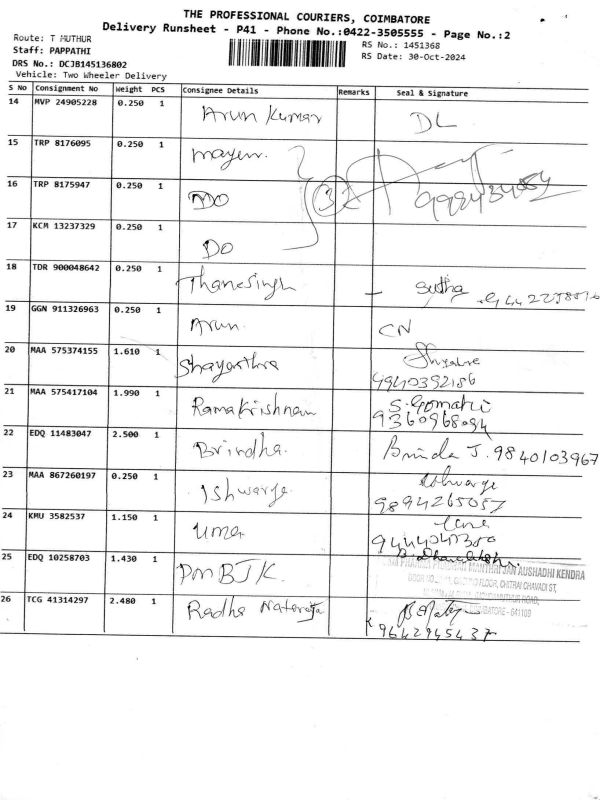 THE PROFESSIONAL COURIERS, COIMBATORE
Delivery Runsheet - P41 - Phone No.:0422-3505555 - Page No.:2
Route: T MUTHUR
RS No.: 1451368
Staff: PAPPATHI
RS Date: 30-Oct-2024
DRS No.: DCJB145136802
Vehicle: Two Wheeler Delivery
S No Consignment No Weight PCS Consignee Details Remarks Seal & Signature
14 MVP 24905228 0.250 1 Arun Kumar DL
15 TRP 8176095 0.250 1
16 TRP 8175947 0.250 1 DO
17 KCM 13237329 0.250 1 DO
18 TDR 900048642 0.250 1 Thanesingh
19 GGN 911326963 0.250 1 Arun CN
20 MAA 575374155 1.610 1
9940392186
21 MAA 575417104 1.990 1 Ramakrishnan S. Gomathi
9360968094
22 EDQ 11483047 2.500 1 Brindha. Brinda J. 9840103967
23 MAA 867260197 0.250 1 Ishwarya
9894265057
24 KMU 3582537 1.150 1 Uma
25 EDQ 10258703 1.430 1 PMBJK.
JAN AUSHADHI KENDRA
FLOOR, CHITRAI CHAVADI ST,
26 TCG 41314297 2.480 1 Radha Nataraja
COIMBATORE - 641109
9642945437